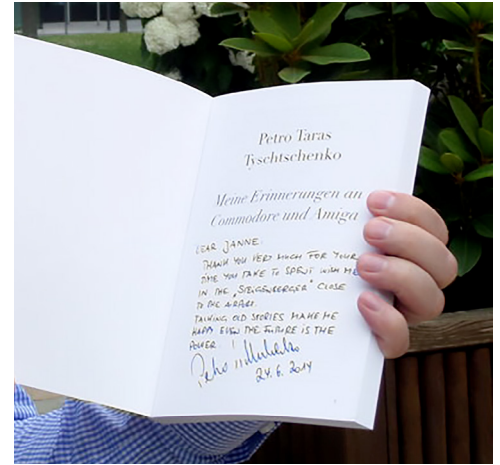 Petro Taras
Tyschtschenko
Meine Erinnerungen an
Commodore und Amiga
DEAR JANNE,
THANK YOU VERY MUCH FOR YOUR
TIME YOU TAKE TO SPENT WITH ME
IN THE „STEIGENBERGER" CLOSE
TO THE
TALKING OLD STORIES MAKE ME
HAPPY EVEN THE FUTURE IS THE
POWER !
Petro
24. 6. 2014